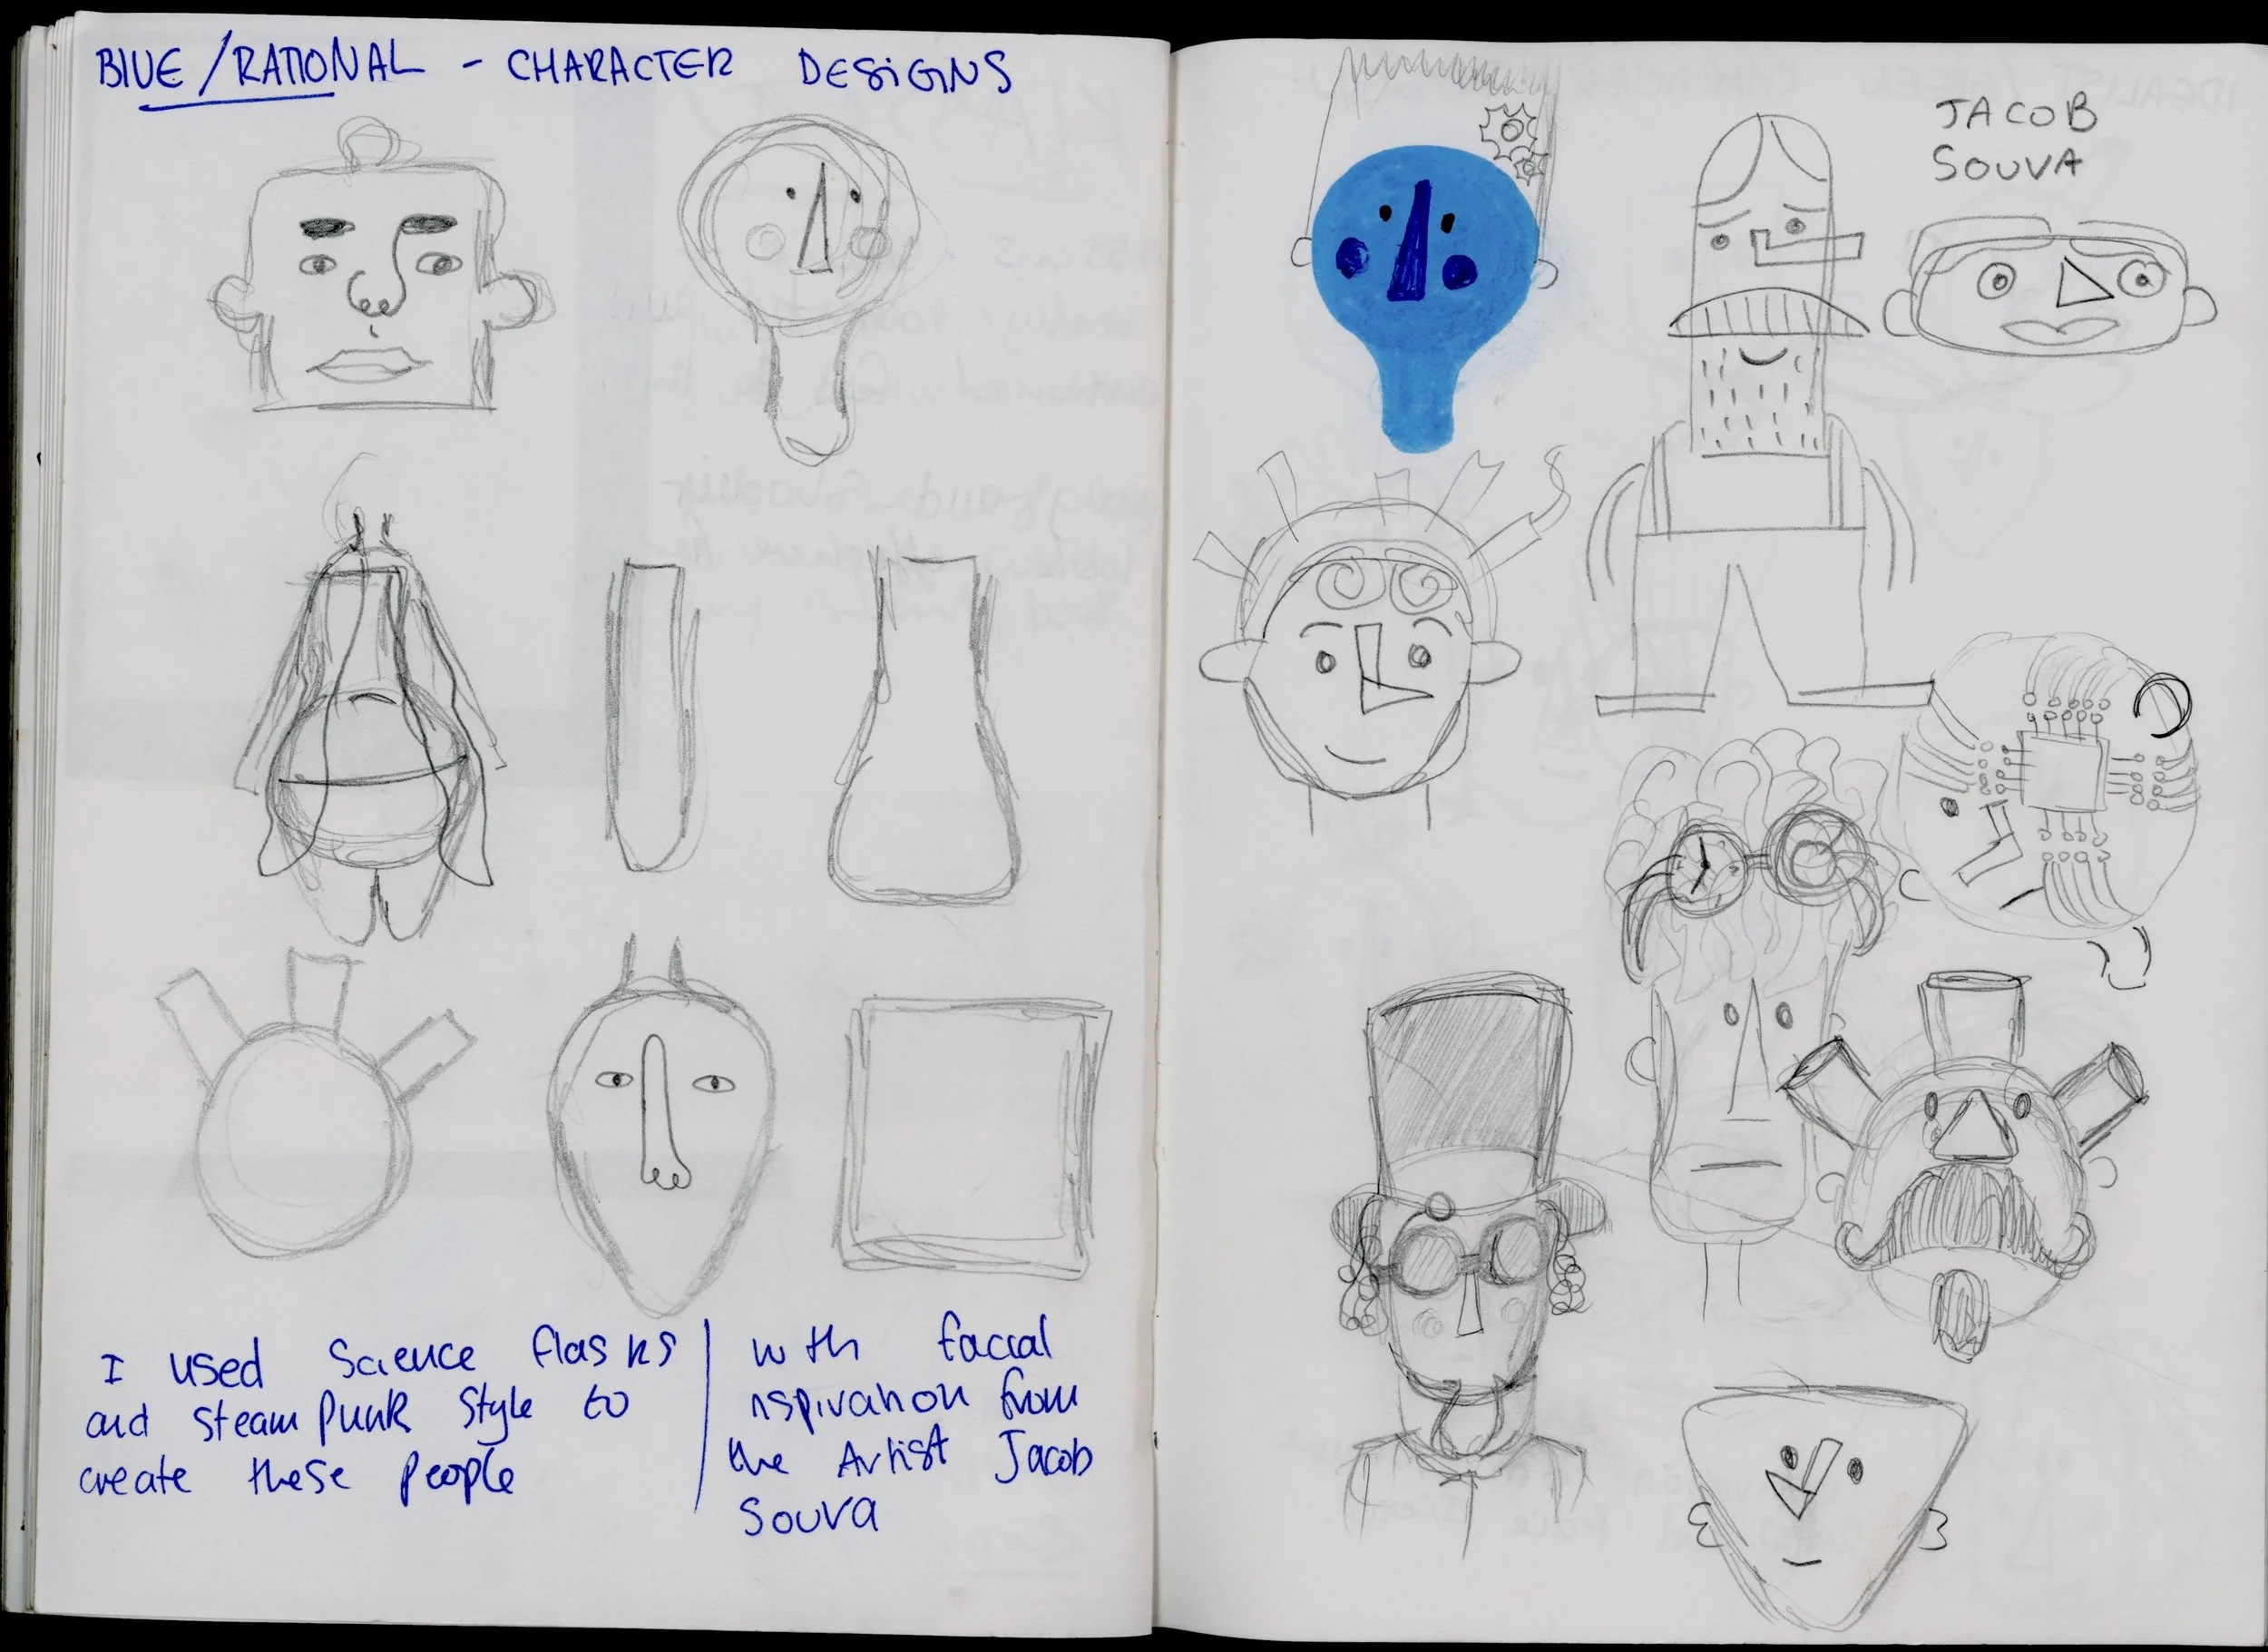 BLUE/RATIONAL - CHARACTER DESIGNS
I used Science flasks
and steampunk style to
create these people
with facial
nspiration from
the Artist Jacob
Souva
JACOB
SOUVA